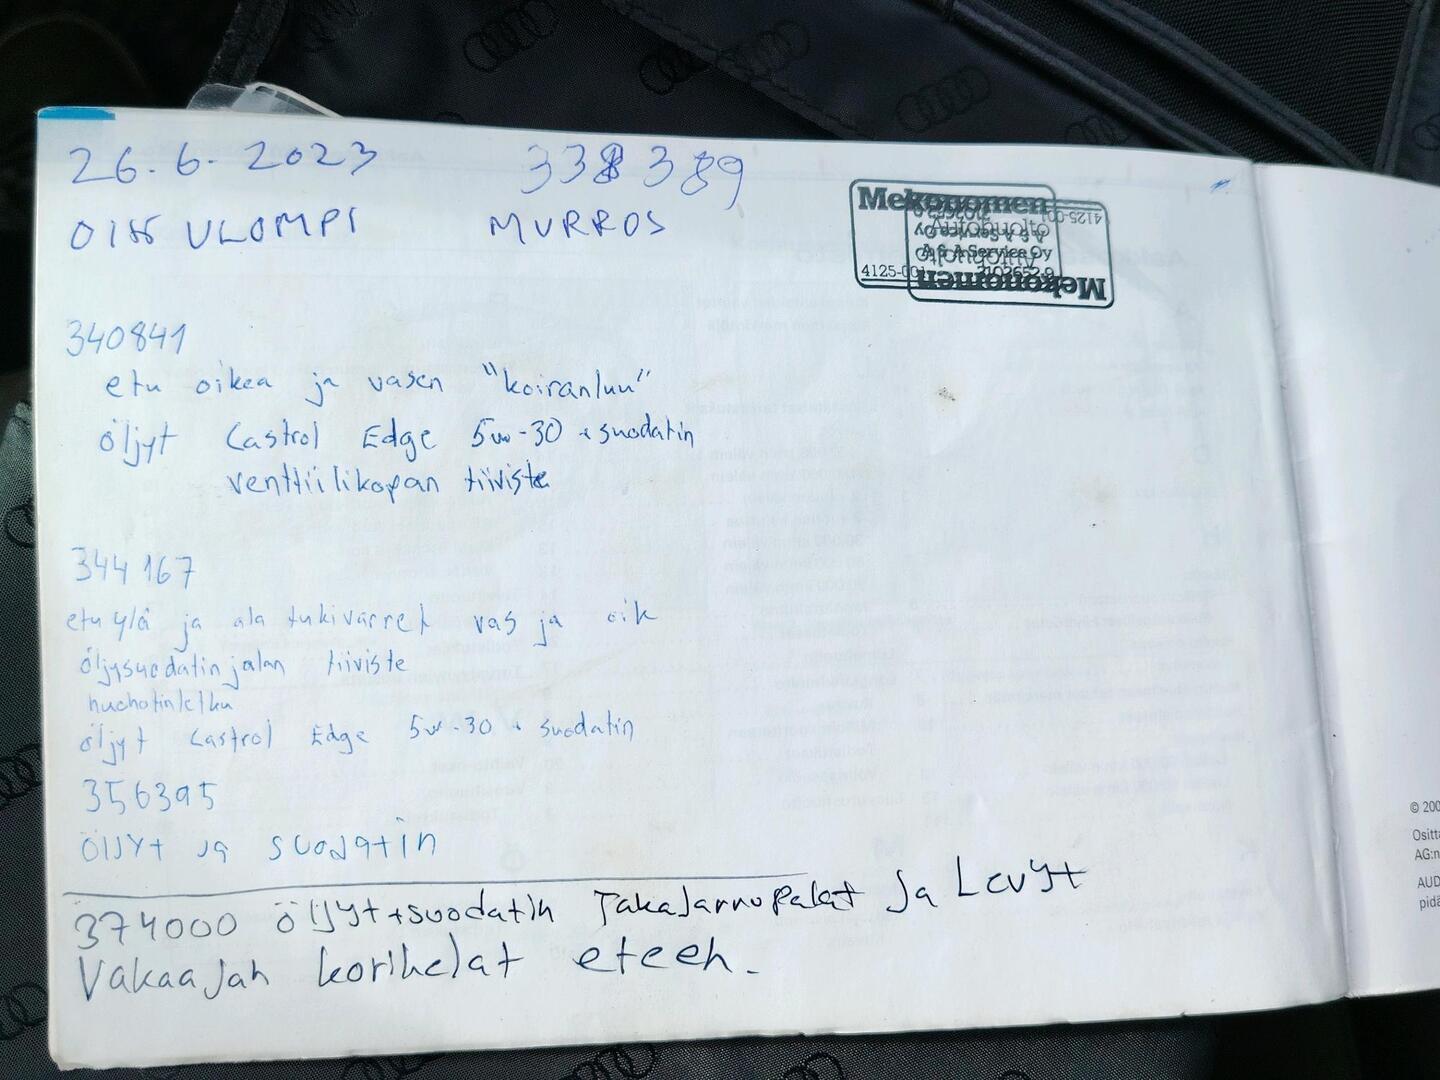 26.6.2023 338389
OIK ULOMPI MURROS
Mekonomen
Autohuolto
A & A Service Oy
4125-001 2102652-9
340841
etu oikea ja vasen "koiranluu"
öljyt Castrol Edge 5w-30 + suodatin
venttiilikopan tiiviste
344167
etu ylä ja ala tukivarret vas ja oik
öljysuodatinjalan tiiviste
huohotinletku
öljyt Castrol Edge 5w-30 + suodatin
356395
ÖLJYt ja suodatin
374000 öljyt+suodatin Takajarrupalat ja Levyt
Vakaajan korihelat eteen.
© 200
Ositt
AG:n
AUD
pidä